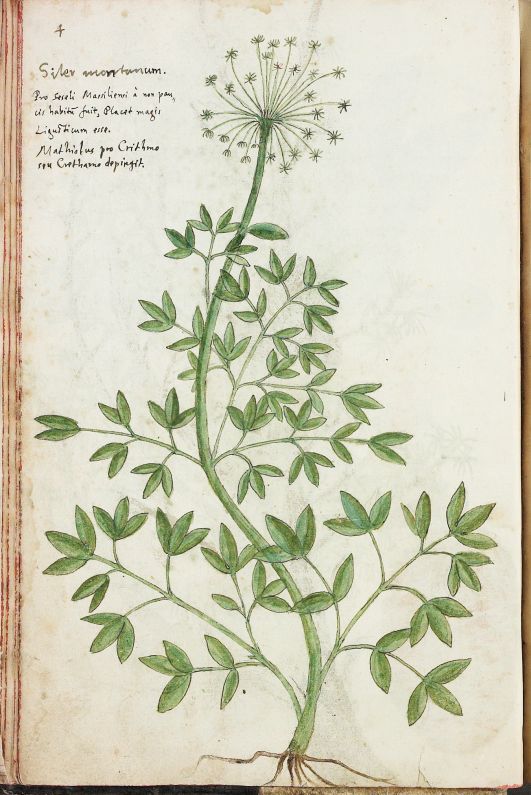 4
Siler montanum.
Pro Seseli Massiliensi à non pau,
cis habitū fuit, Placet magis
Ligusticum esse.
Mathiolus pro Crithmo
seu Crethamo depingit.